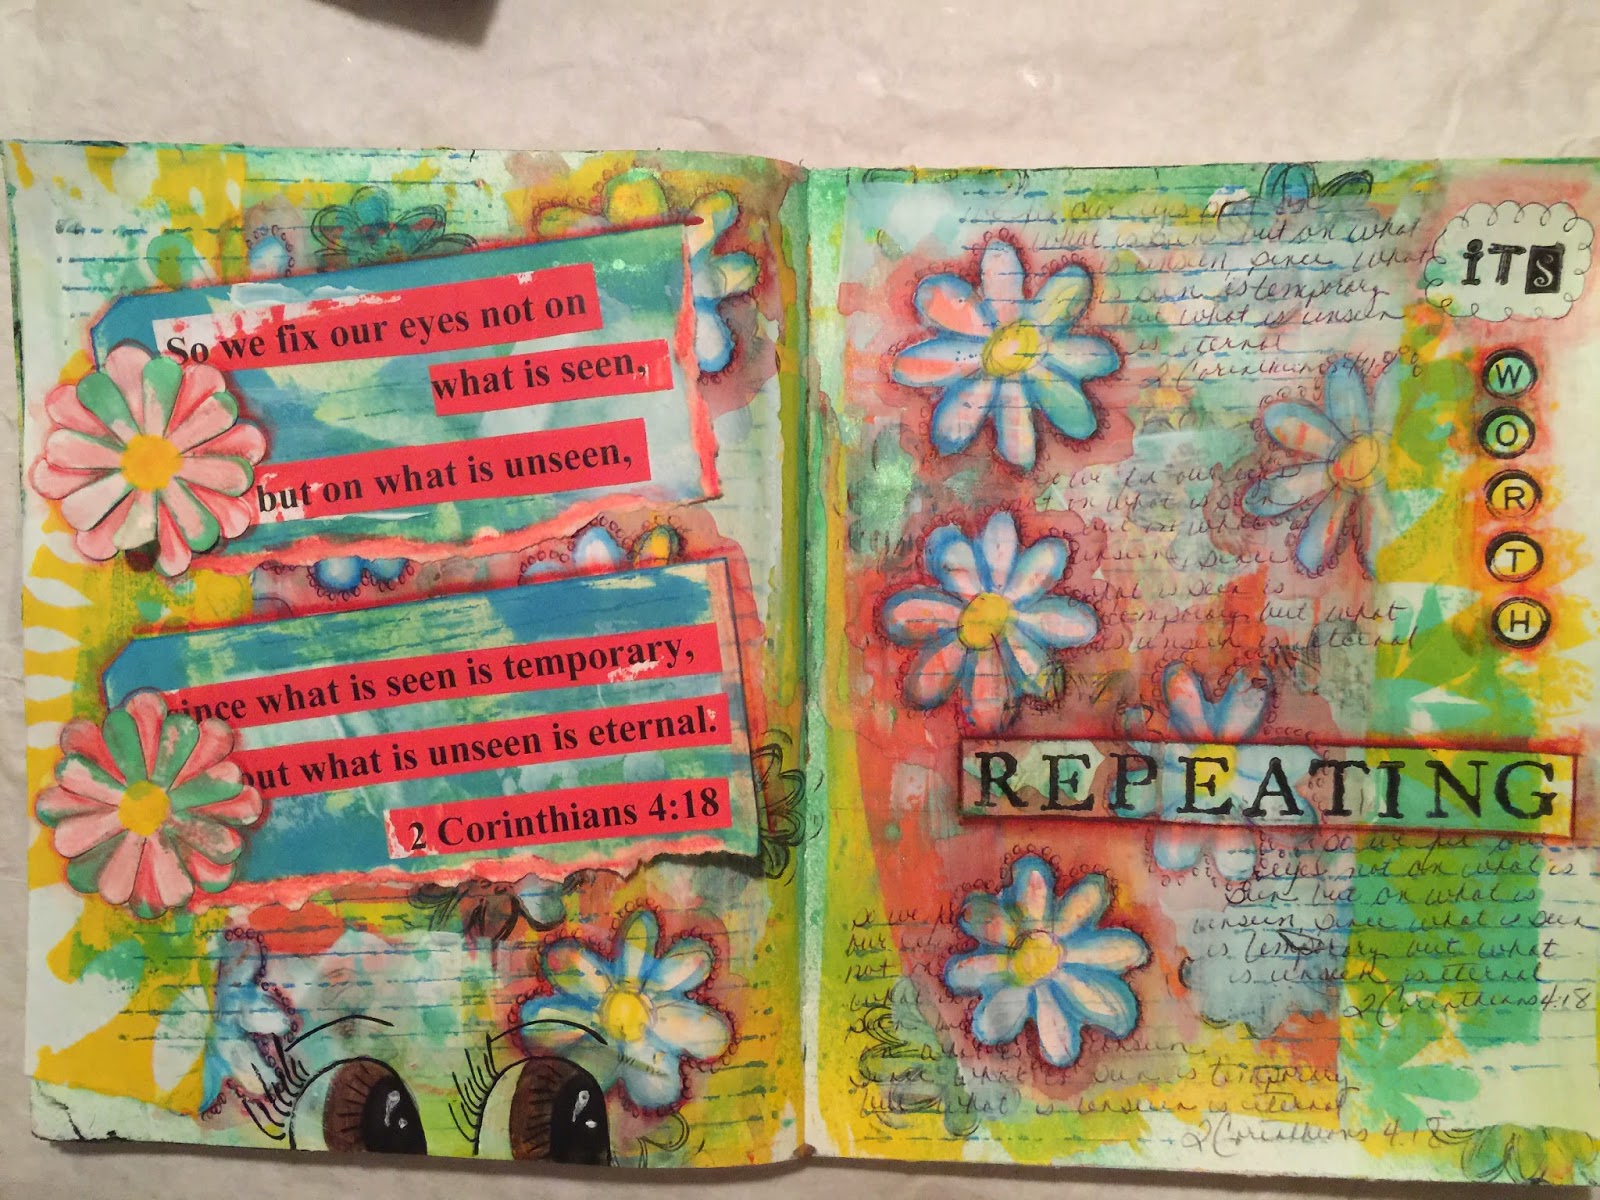 So we fix our eyes not on
what is seen,
but on what is unseen,
since what is seen is temporary,
but what is unseen is eternal.
2 Corinthians 4:18
iTS
WORTH
REPEATING
our eyes
what is seen but on what
is unseen since what
is seen is temporary
but what is unseen
is eternal
2 Corinthians 4:18
so we fix our eyes
not on what is seen
but on what
unseen, since
what is seen is
temporary but what
is unseen is eternal
so we fix our
eyes not on what is
seen but on what is
unseen, since what is seen
is temporary but what
is unseen is eternal
2 Corinthians 4:18
so we fix
our eyes
not on
what is
seen but
on what is unseen,
since what is seen is temporary
but what is unseen is eternal
2 Corinthians 4:18